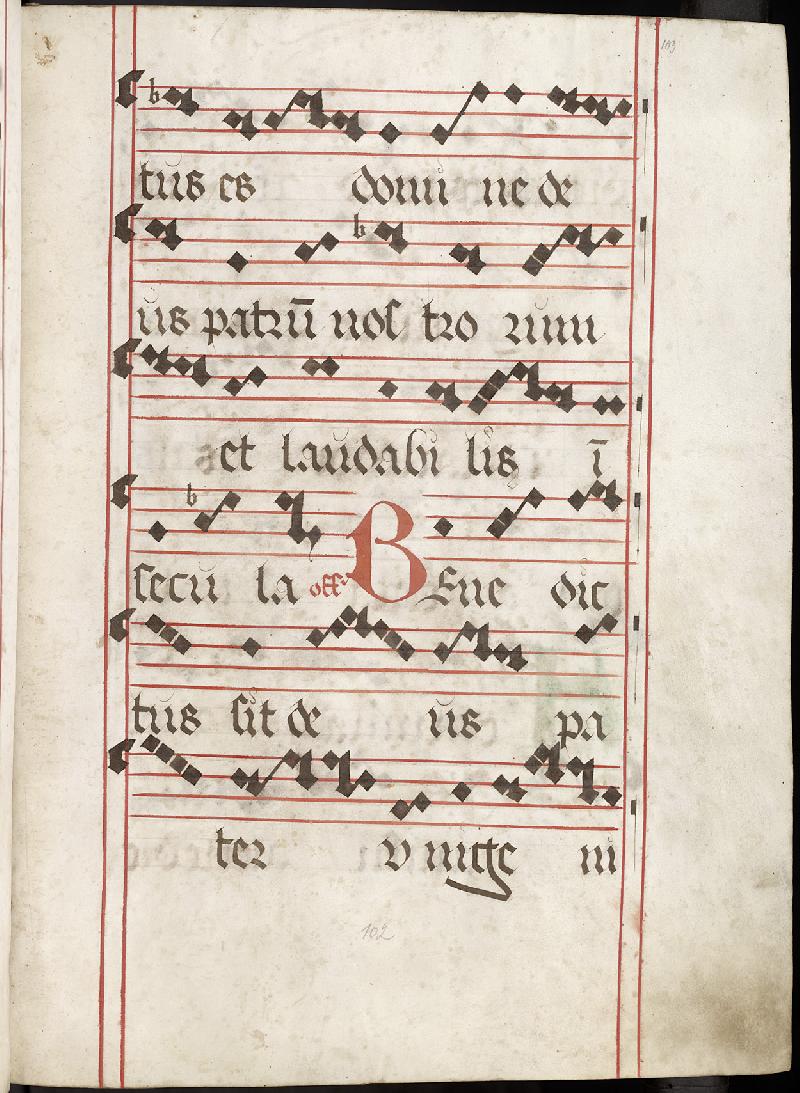 103
b
tus es domi ne de
b
us patrū nos tro rum
et laudabi lis ī
b
secu la off B Ene dic
tus sit de us pa
ter v nitge ni
102